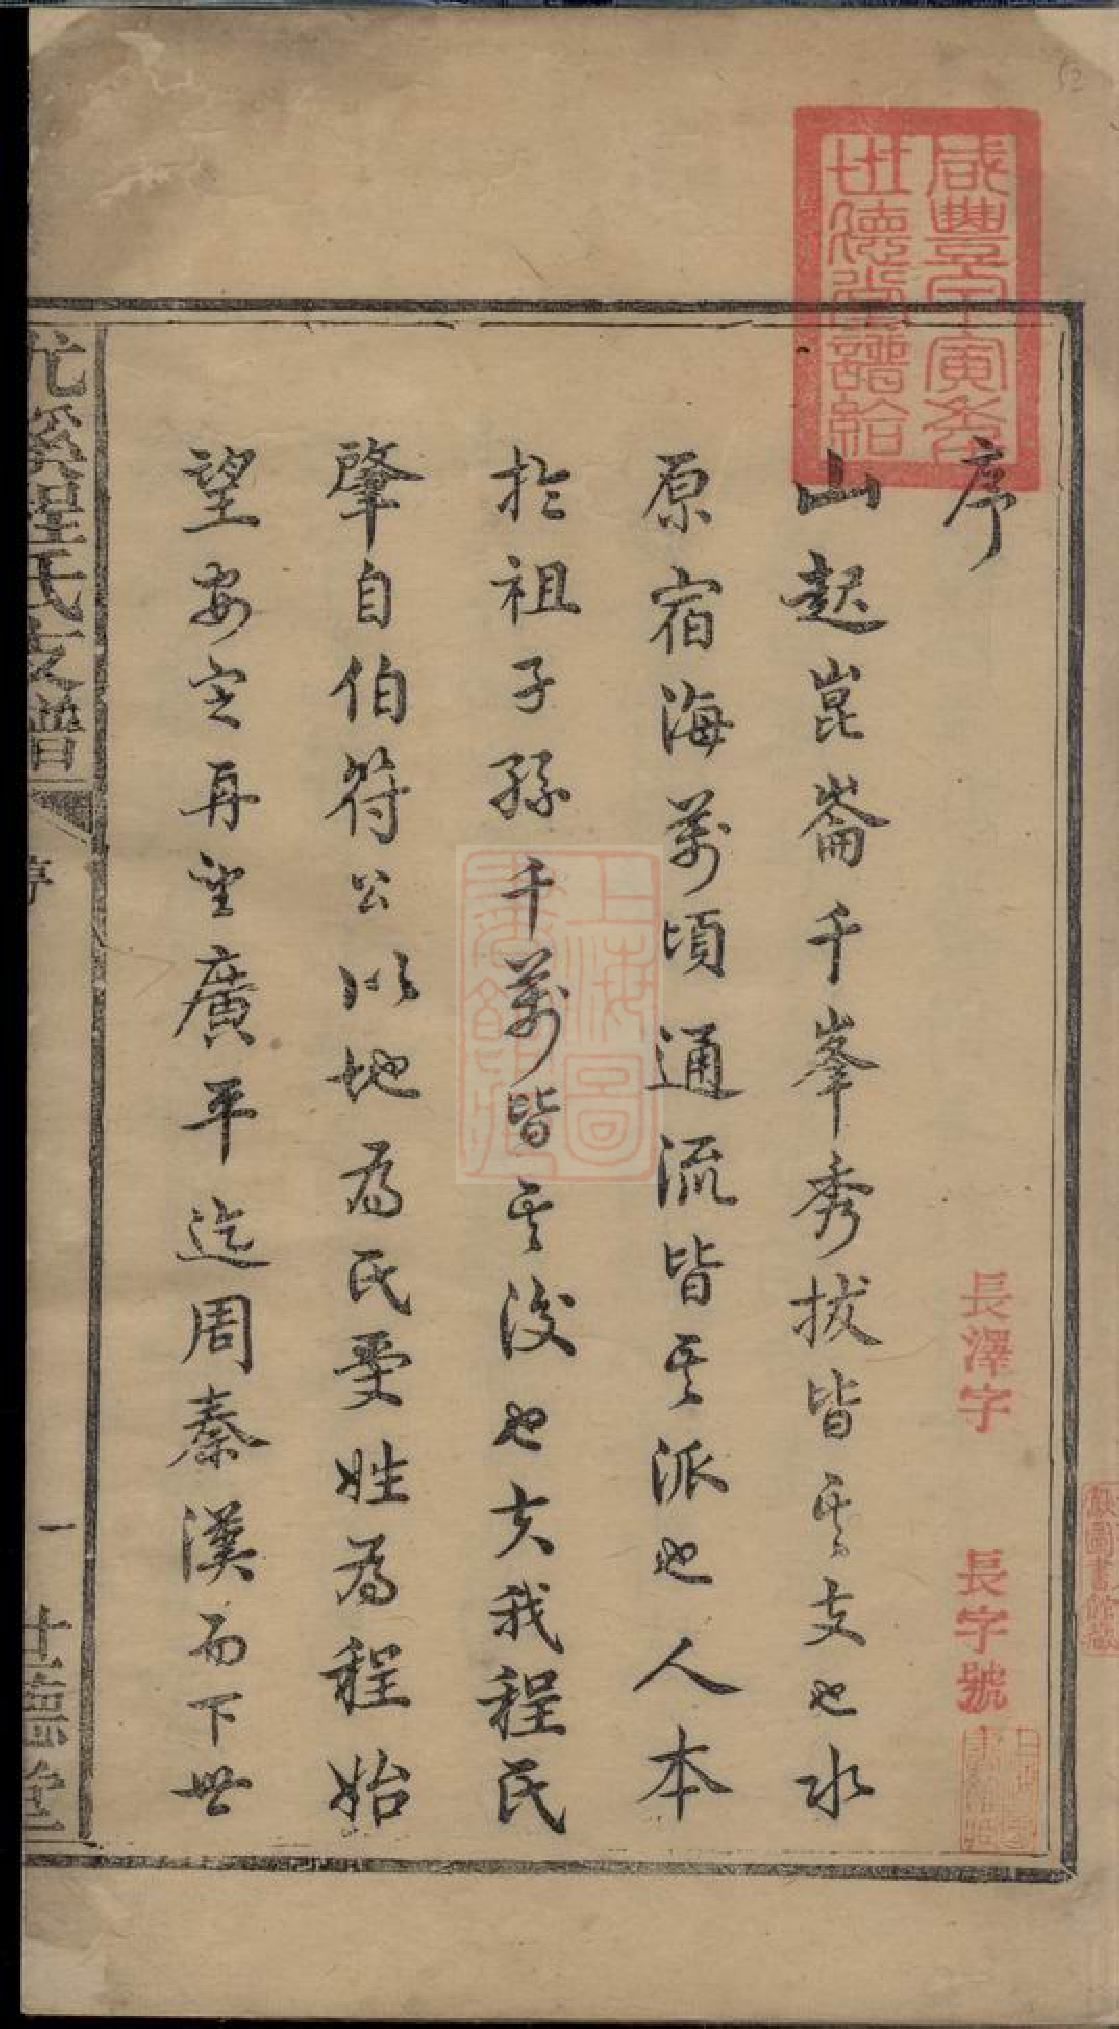 咸豐甲寅年
世德堂譜給
序
山起崑崙千峯秀拔皆其支也水
原宿海萬頃通流皆其派也人本
於祖子孫千萬皆其後也夫我程氏
肇自伯符公以地為氏受姓為程始
望安定再望廣平迄周秦漢而下世
長澤字
長字號
上海圖
書館藏
尤溪程氏支譜
序
一
世德堂